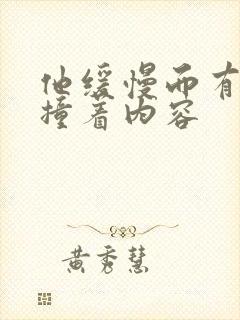 他缓慢而有
撞着内容
黄秀慧